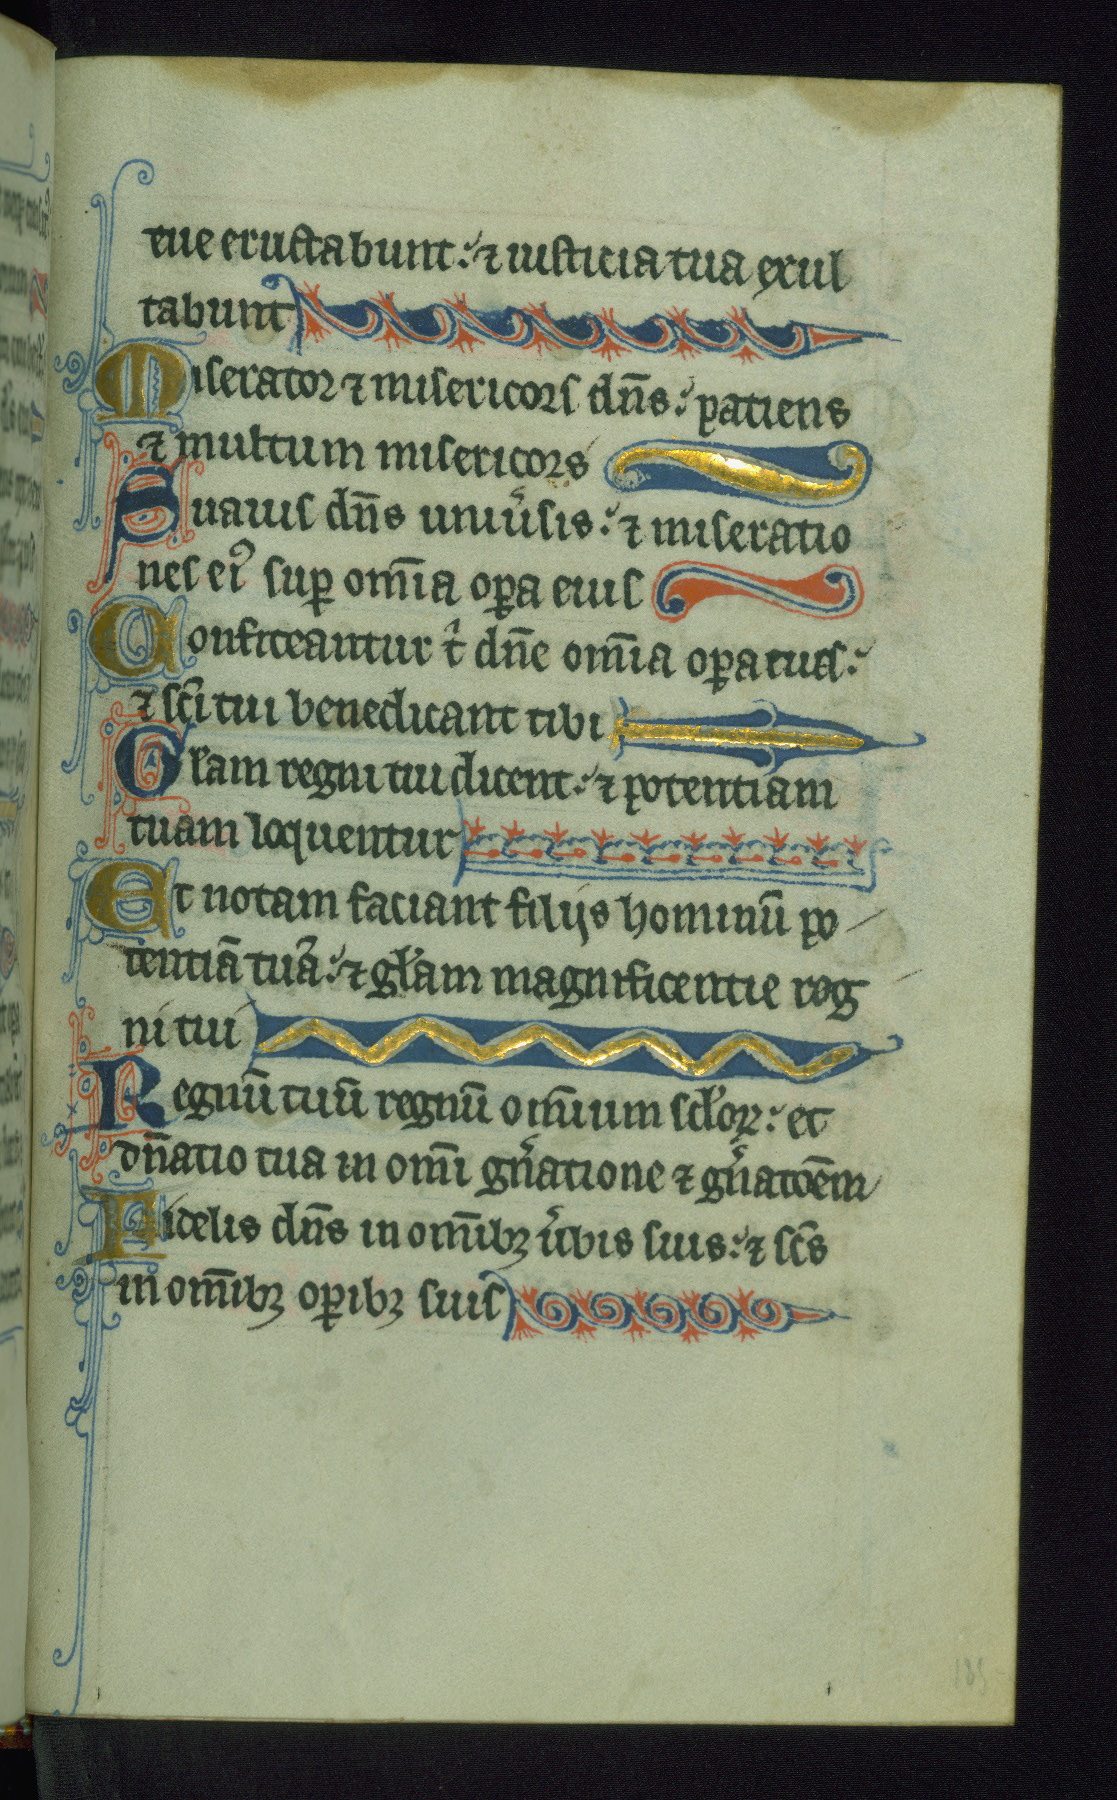 tue eructabunt: ⁊ iusticia tua exul
tabunt
Miserator ⁊ misericors dn̄s: patiens
⁊ multum misericors
Suauis dn̄s uniu̓sis: ⁊ miseratio
nes eiꝰ suꝑ om̄ia oꝑa eius
Confiteantur t̓ dn̄e om̄ia oꝑa tua:
⁊ sc̄i tui benedicant tibi
Gl̓am regni tui dicent: ⁊ potentiam
tuam loquentur
Et notam faciant filijs hominū po
tentiā tuā: ⁊ gl̓am magnificentie reg
ni tui
Regnū tuū regnū om̄ium scl̓oꝝ: et
dn̄atio tua in om̄i gn̓atione ⁊ gn̓atōem
Fidelis dn̄s in om̄ibꝫ u̓bis suis: ⁊ sc̄s
in om̄ibꝫ oꝑibꝫ suis
185